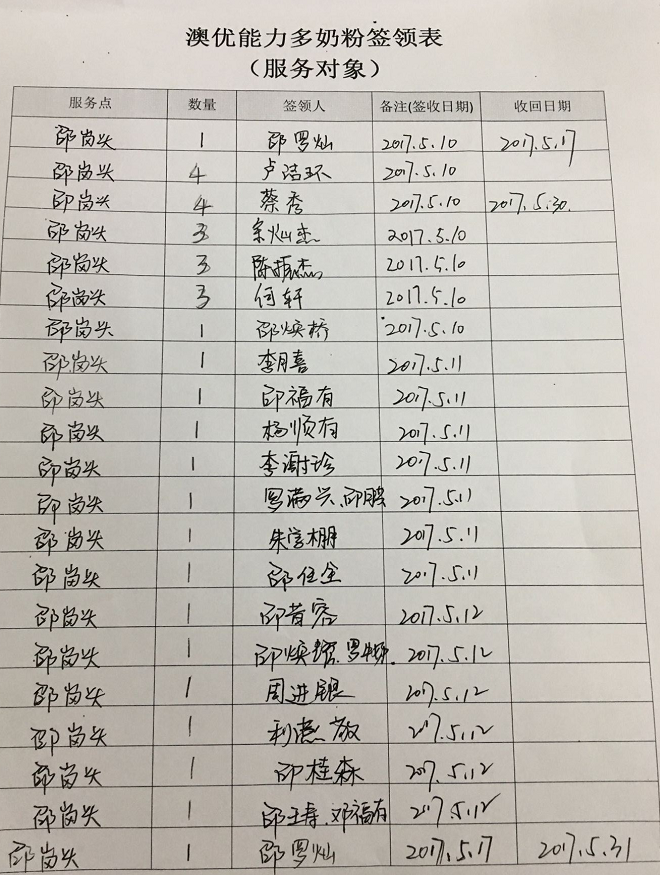 澳优能力多奶粉签领表
（服务对象）
服务点 数量 签领人 备注(签收日期) 收回日期
邵岗头 1 邵罗灿 2017.5.10 2017.5.17
邵岗头 4 卢洁环 2017.5.10
邵岗头 4 蔡秀 2017.5.10 2017.5.30.
邵岗头 3 宋灿杰 2017.5.10
邵岗头 3 陈振杰 2017.5.10
邵岗头 3 何轩 2017.5.10
邵岗头 1 邵焕桥 2017.5.10
邵岗头 1 李月喜 2017.5.11
邵岗头 1 邵福有 2017.5.11
邵岗头 1 杨顺有 2017.5.11
邵岗头 1 李谢珍 2017.5.11
邵岗头 1 罗满兴.邵鹏 2017.5.11
邵岗头 1 朱学棚 2017.5.11
邵岗头 1 邵任全 2017.5.11
邵岗头 1 邵昔容 2017.5.12
邵岗头 1 邵焕 2017.5.12
邵岗头 1 周进银 2017.5.12
邵岗头 1 利 2017.5.12
邵岗头 1 邵桂森 2017.5.12
邵岗头 1 邵王寿.邓福有 2017.5.12
邵岗头 1 邵罗灿 2017.5.17 2017.5.31